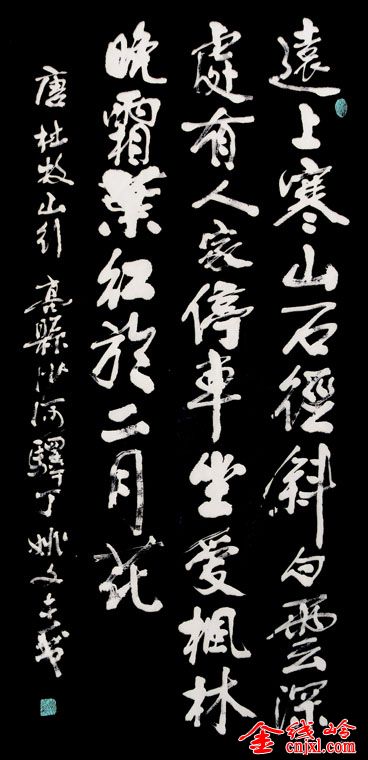 遠上寒山石徑斜白雲深
處有人家停車坐愛楓林
晚霜葉紅於二月花
唐杜牧山行 縣河驛丁姚文
金钱岭
cnjxl.com